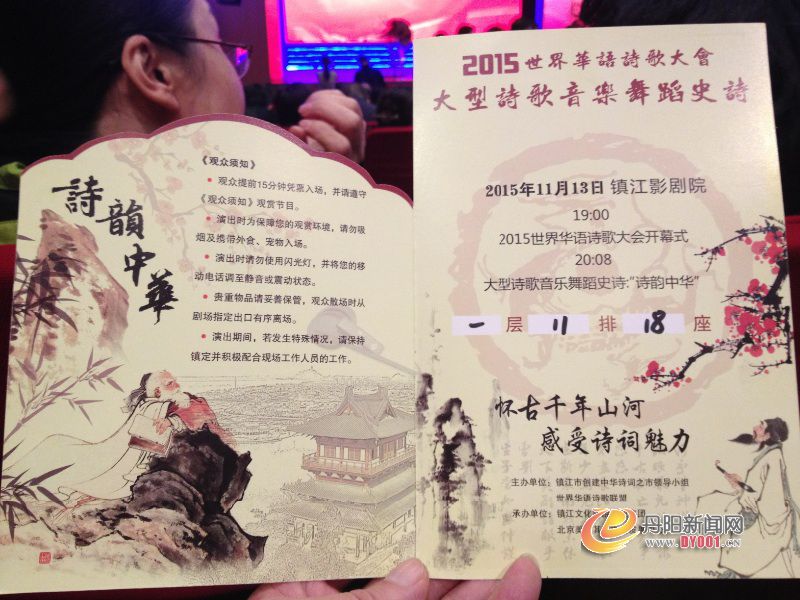 詩韻中華
《观众须知》
● 观众提前15分钟凭票入场，并请遵守
《观众须知》观赏节目。
● 演出时为保障您的观赏环境，请勿吸
烟及携带外食、宠物入场。
● 演出时请勿使用闪光灯，并将您的移
动电话调至静音或震动状态。
● 贵重物品请妥善保管，观众散场时从
剧场指定出口有序离场。
● 演出期间，若发生特殊情况，请保持
镇定并积极配合现场工作人员的工作。
2015世界華語詩歌大會
大型詩歌音樂舞蹈史詩
2015年11月13日 镇江影剧院
19:00
2015世界华语诗歌大会开幕式
20:08
大型诗歌音乐舞蹈史诗:"诗韵中华"
一 层 11 排 18 座
怀古千年山河
感受诗词魅力
主办单位：镇江市创建中华诗词之市领导小组
世界华语诗歌联盟
承办单位：镇江文化
团
北京
丹阳新闻网
www.DY001.cn